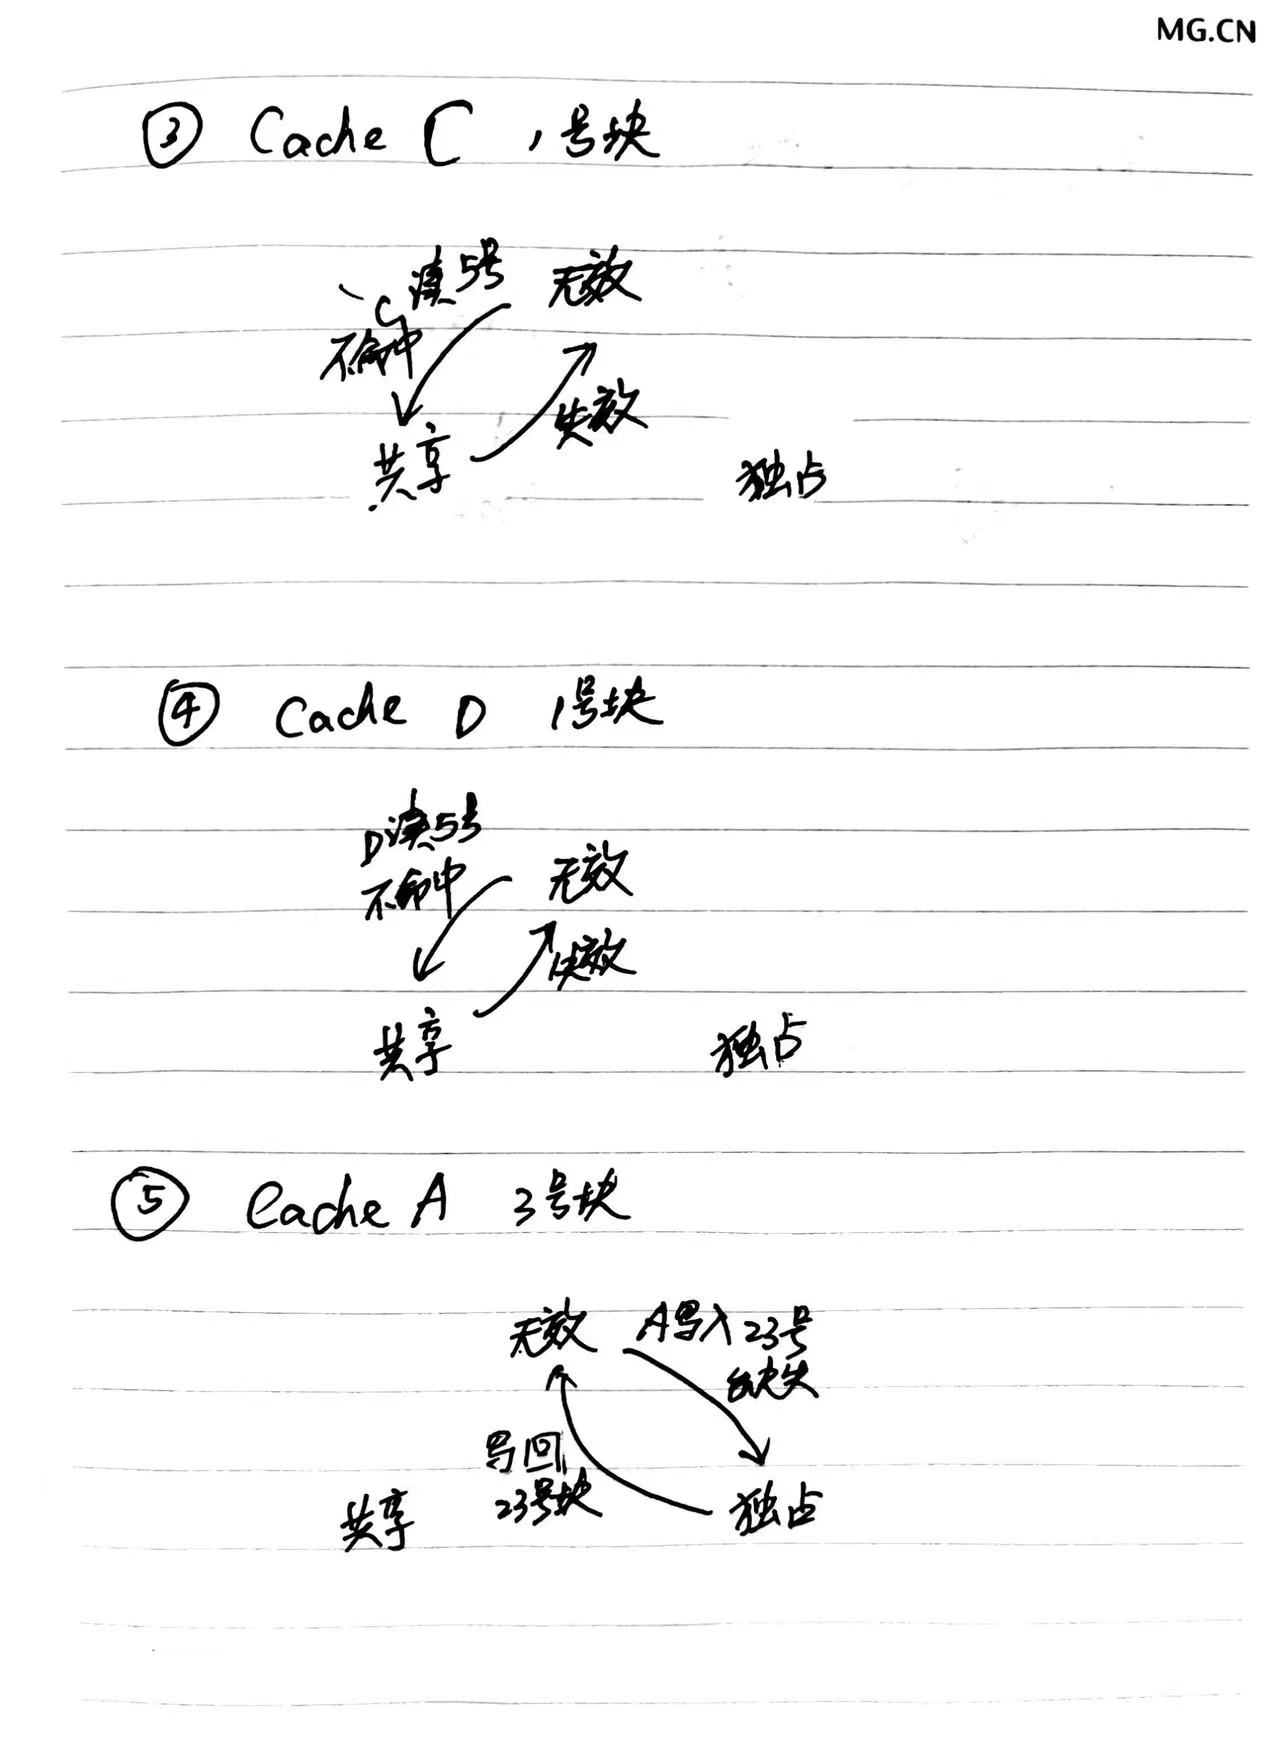 MG.CN
③ Cache C 1号块
C读5号
不命中
无效
失效
共享
独占
④ Cache D 1号块
D读5号
不命中
无效
失效
共享
独占
⑤ Cache A 3号块
无效
A写入23号
缺失
写回
23号块
共享
独占